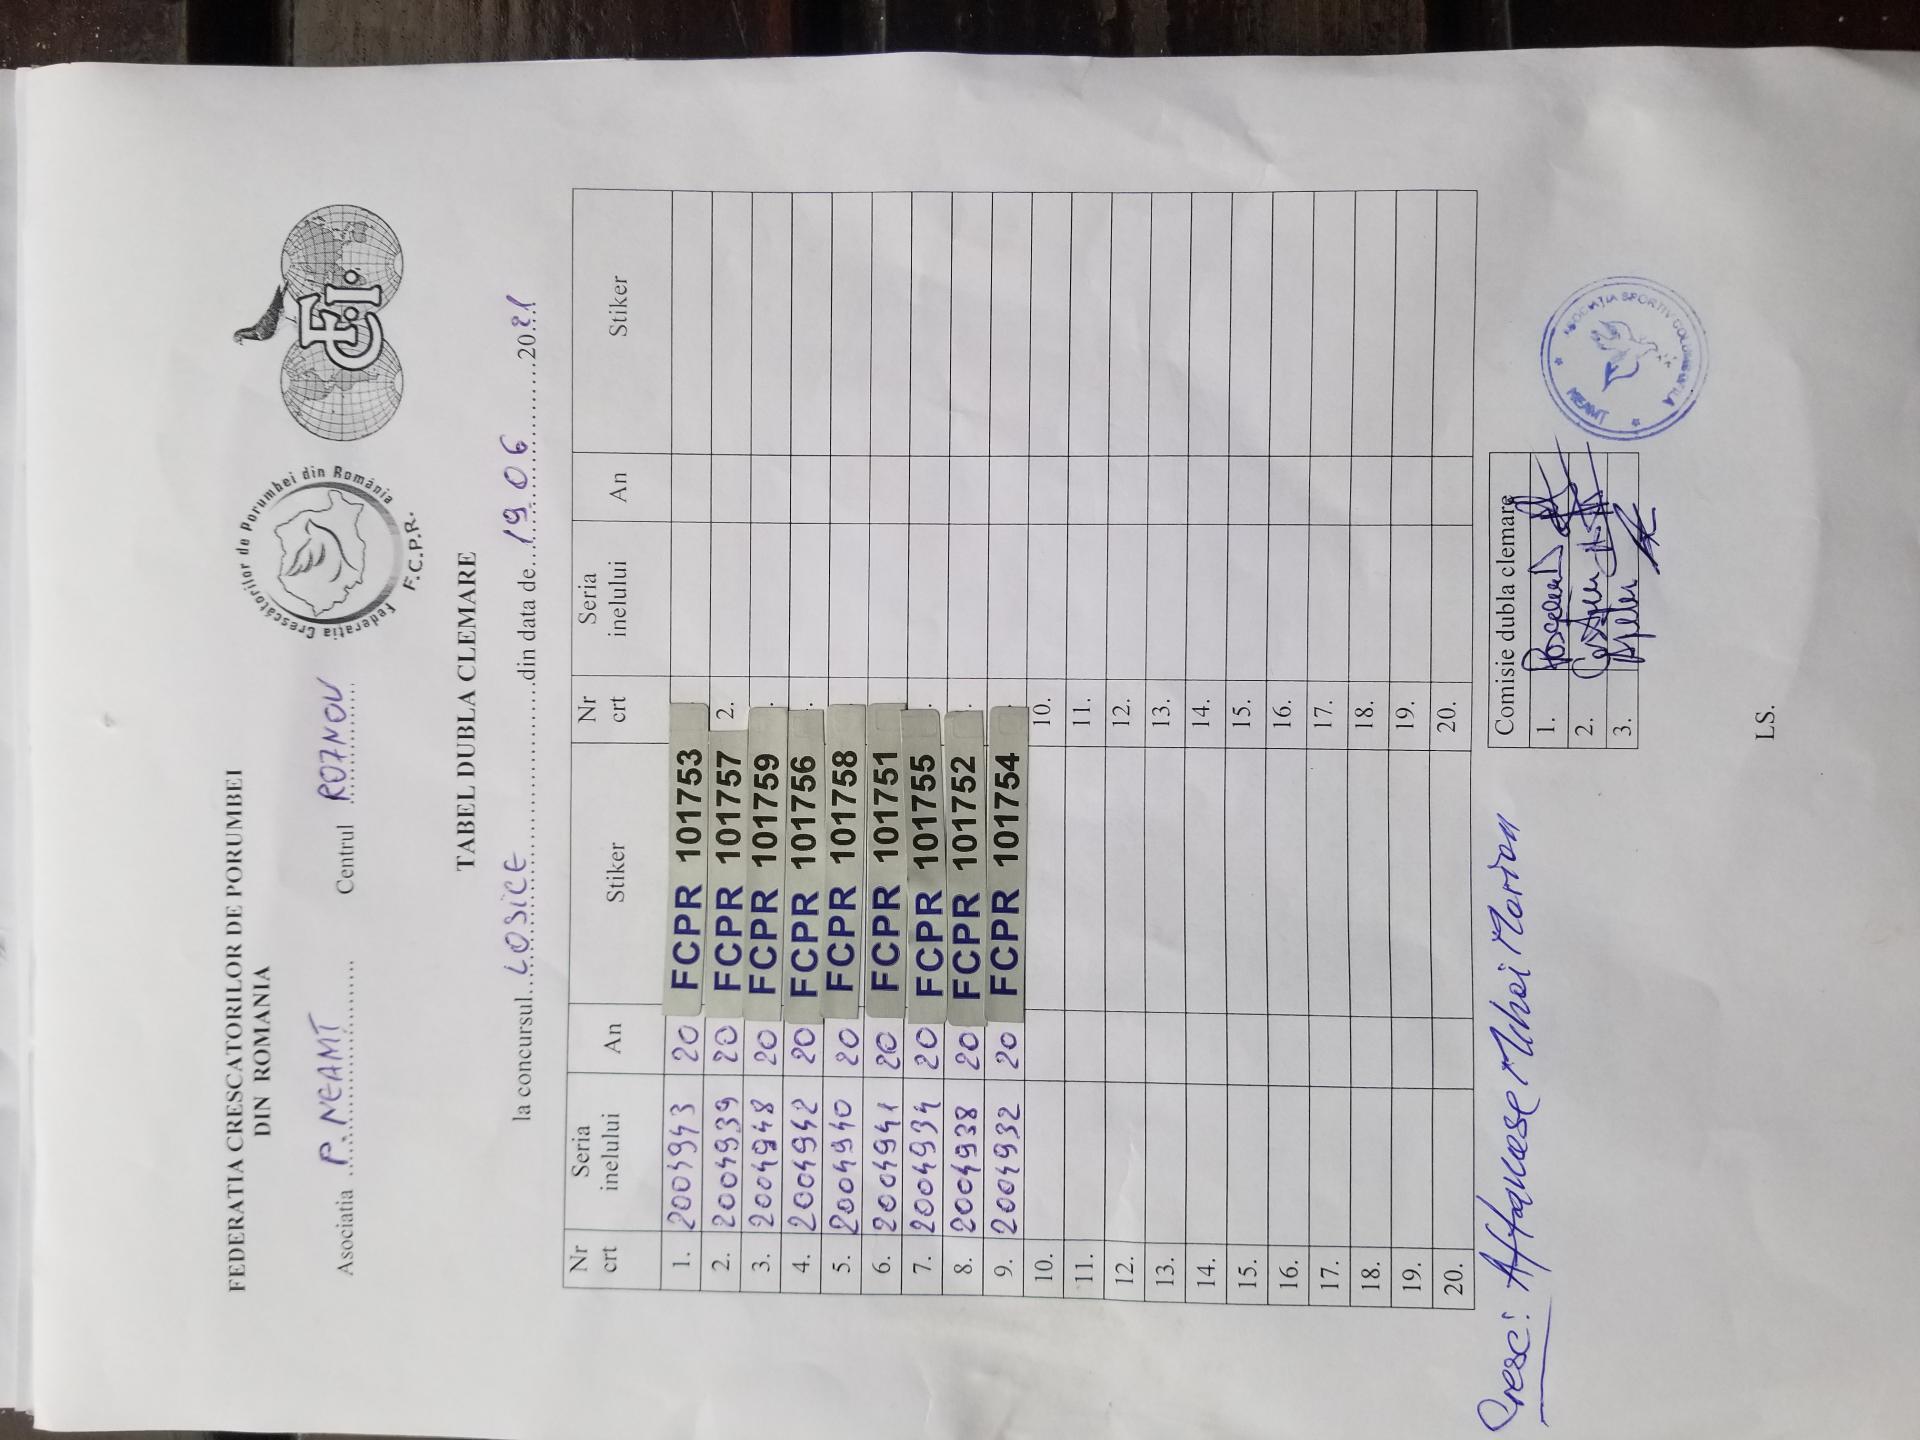 FEDERATIA CRESCATORILOR DE PORUMBEI
DIN ROMANIA
Federația Crescătorilor de Porumbei din România
F.C.P.R.
F.C.I.
Asociatia P. NEAMT Centrul ROZNOV
TABEL DUBLA CLEMARE
la concursul LOSICE din data de 19 06 2021
Nr crt Seria inelului An Stiker Nr crt Seria inelului An Stiker
1. 2004943 20 FCPR 101753
2. 2004939 20 FCPR 101757 2.
3. 2004948 20 FCPR 101759
4. 2004942 20 FCPR 101756
5. 2004940 20 FCPR 101758
6. 2004941 20 FCPR 101751
7. 2004934 20 FCPR 101755
8. 2004938 20 FCPR 101752
9. 2004932 20 FCPR 101754
10. 10.
11. 11.
12. 12.
13. 13.
14. 14.
15. 15.
16. 16.
17. 17.
18. 18.
19. 19.
20. 20.
Cresc: Mihai Marian
Comisie dubla clemare
1.
2.
3.
ASOCIAȚIA SPORTIV COLUMBOFILA
NEAMT
LS.